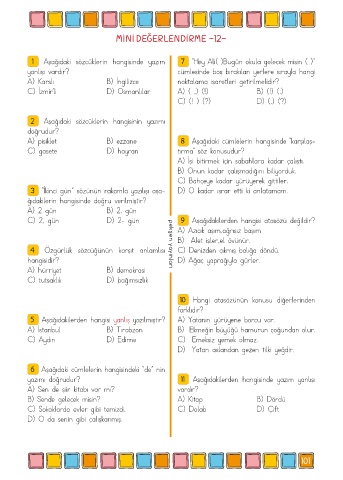 MİNİ DEĞERLENDİRME -12-
1 Aşağıdaki sözcüklerin hangisinde yazım
yanlışı vardır?
A) Karslı B) İngilizce
C) İzmir'li D) Osmanlılar
2 Aşağıdaki sözcüklerin hangisinin yazımı
doğrudur?
A) pisiklet B) eczane
C) gasete D) hayran
3 "İkinci gün" sözünün rakamla yazılışı aşa-
ğıdakilerin hangisinde doğru verilmiştir?
A) 2 gün B) 2. gün
C) 2, gün D) 2- gün
4 Özgürlük sözcüğünün karşıt anlamlısı
hangisidir?
A) hürriyet B) demokrasi
C) tutsaklık D) bağımsızlık
5 Aşağıdakilerden hangisi yanlış yazılmıştır?
A) İstanbul B) Tirabzon
C) Aydın D) Edirne
6 Aşağıdaki cümlelerin hangisindeki "de" nin
yazımı doğrudur?
A) Sen de şiir kitabı var mı?
B) Sende gelecek misin?
C) Sokaklarda evler gibi temizdi.
D) O da senin gibi çalışkanmış.
7 "Hey Ali( )Bugün okula gelecek misin ( )"
cümlesinde boş bırakılan yerlere sırayla hangi
noktalama işaretleri getirilmelidir?
A) (,) (!) B) (!) (.)
C) (!) (?) D) (.) (?)
8 Aşağıdaki cümlelerin hangisinde "karşılaş-
tırma" söz konusudur?
A) İşi bitirmek için sabahlara kadar çalıştı.
B) Onun kadar çalışmadığını biliyorduk.
C) Bahçeye kadar yürüyerek gittiler.
D) O kadar ısrar etti ki anlatamam.
9 Aşağıdakilerden hangisi atasözü değildir?
A) Azıcık aşım,ağrısız başım.
B) Alet işler,el övünür.
C) Denizden çıkmış balığa döndü.
D) Ağaç yaprağıyla gürler.
10 Hangi atasözünün konusu diğerlerinden
farklıdır?
A) Yatanın yürüyene borcu var.
B) Ekmeğin büyüğü hamurun çoğundan olur.
C) Emeksiz yemek olmaz.
D) Yatan aslandan gezen tilki yeğdir.
11 Aşağıdakilerden hangisinde yazım yanlışı
vardır?
A) Kitap B) Dördü
C) Dolab D) Çift
101